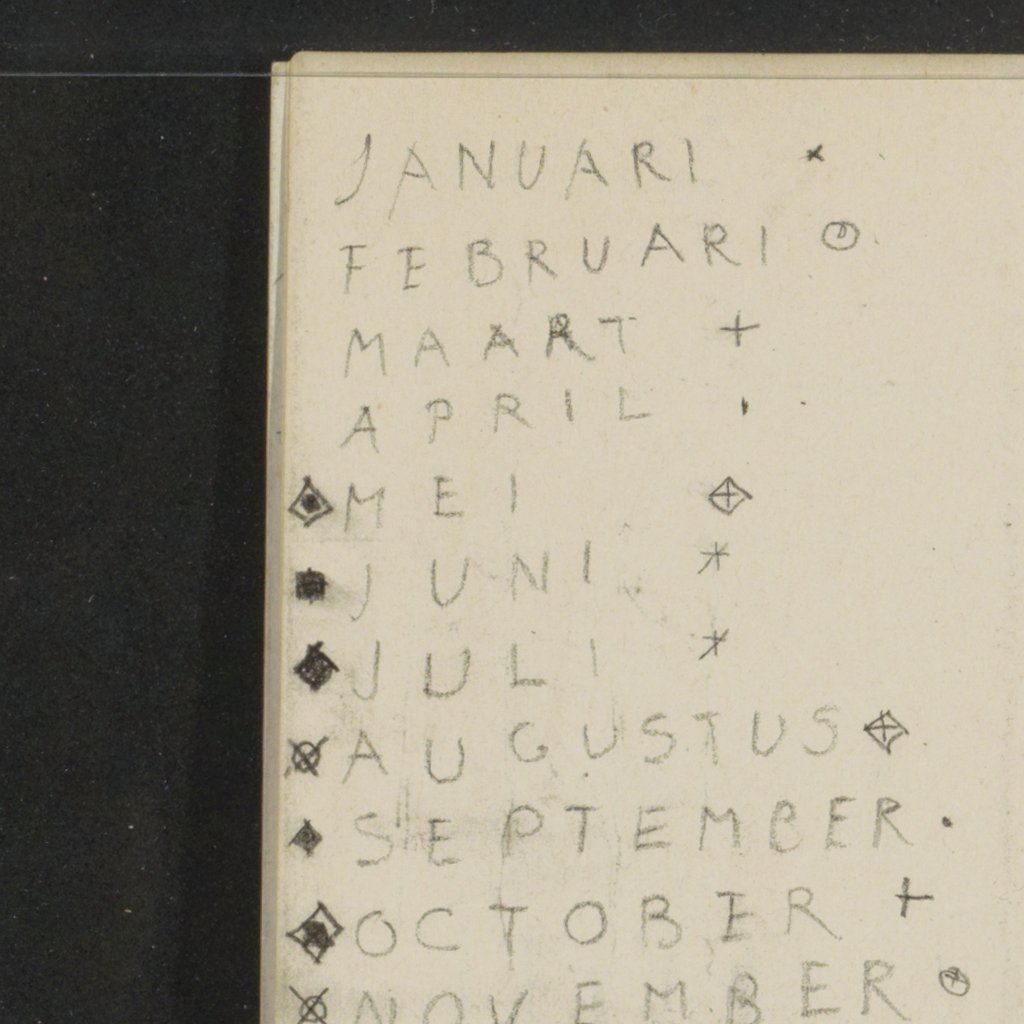 JANUARI
FEBRUARI
MAART
APRIL
MEI
JUNI
JULI
AUGUSTUS
SEPTEMBER.
OCTOBER
NOVEMBER